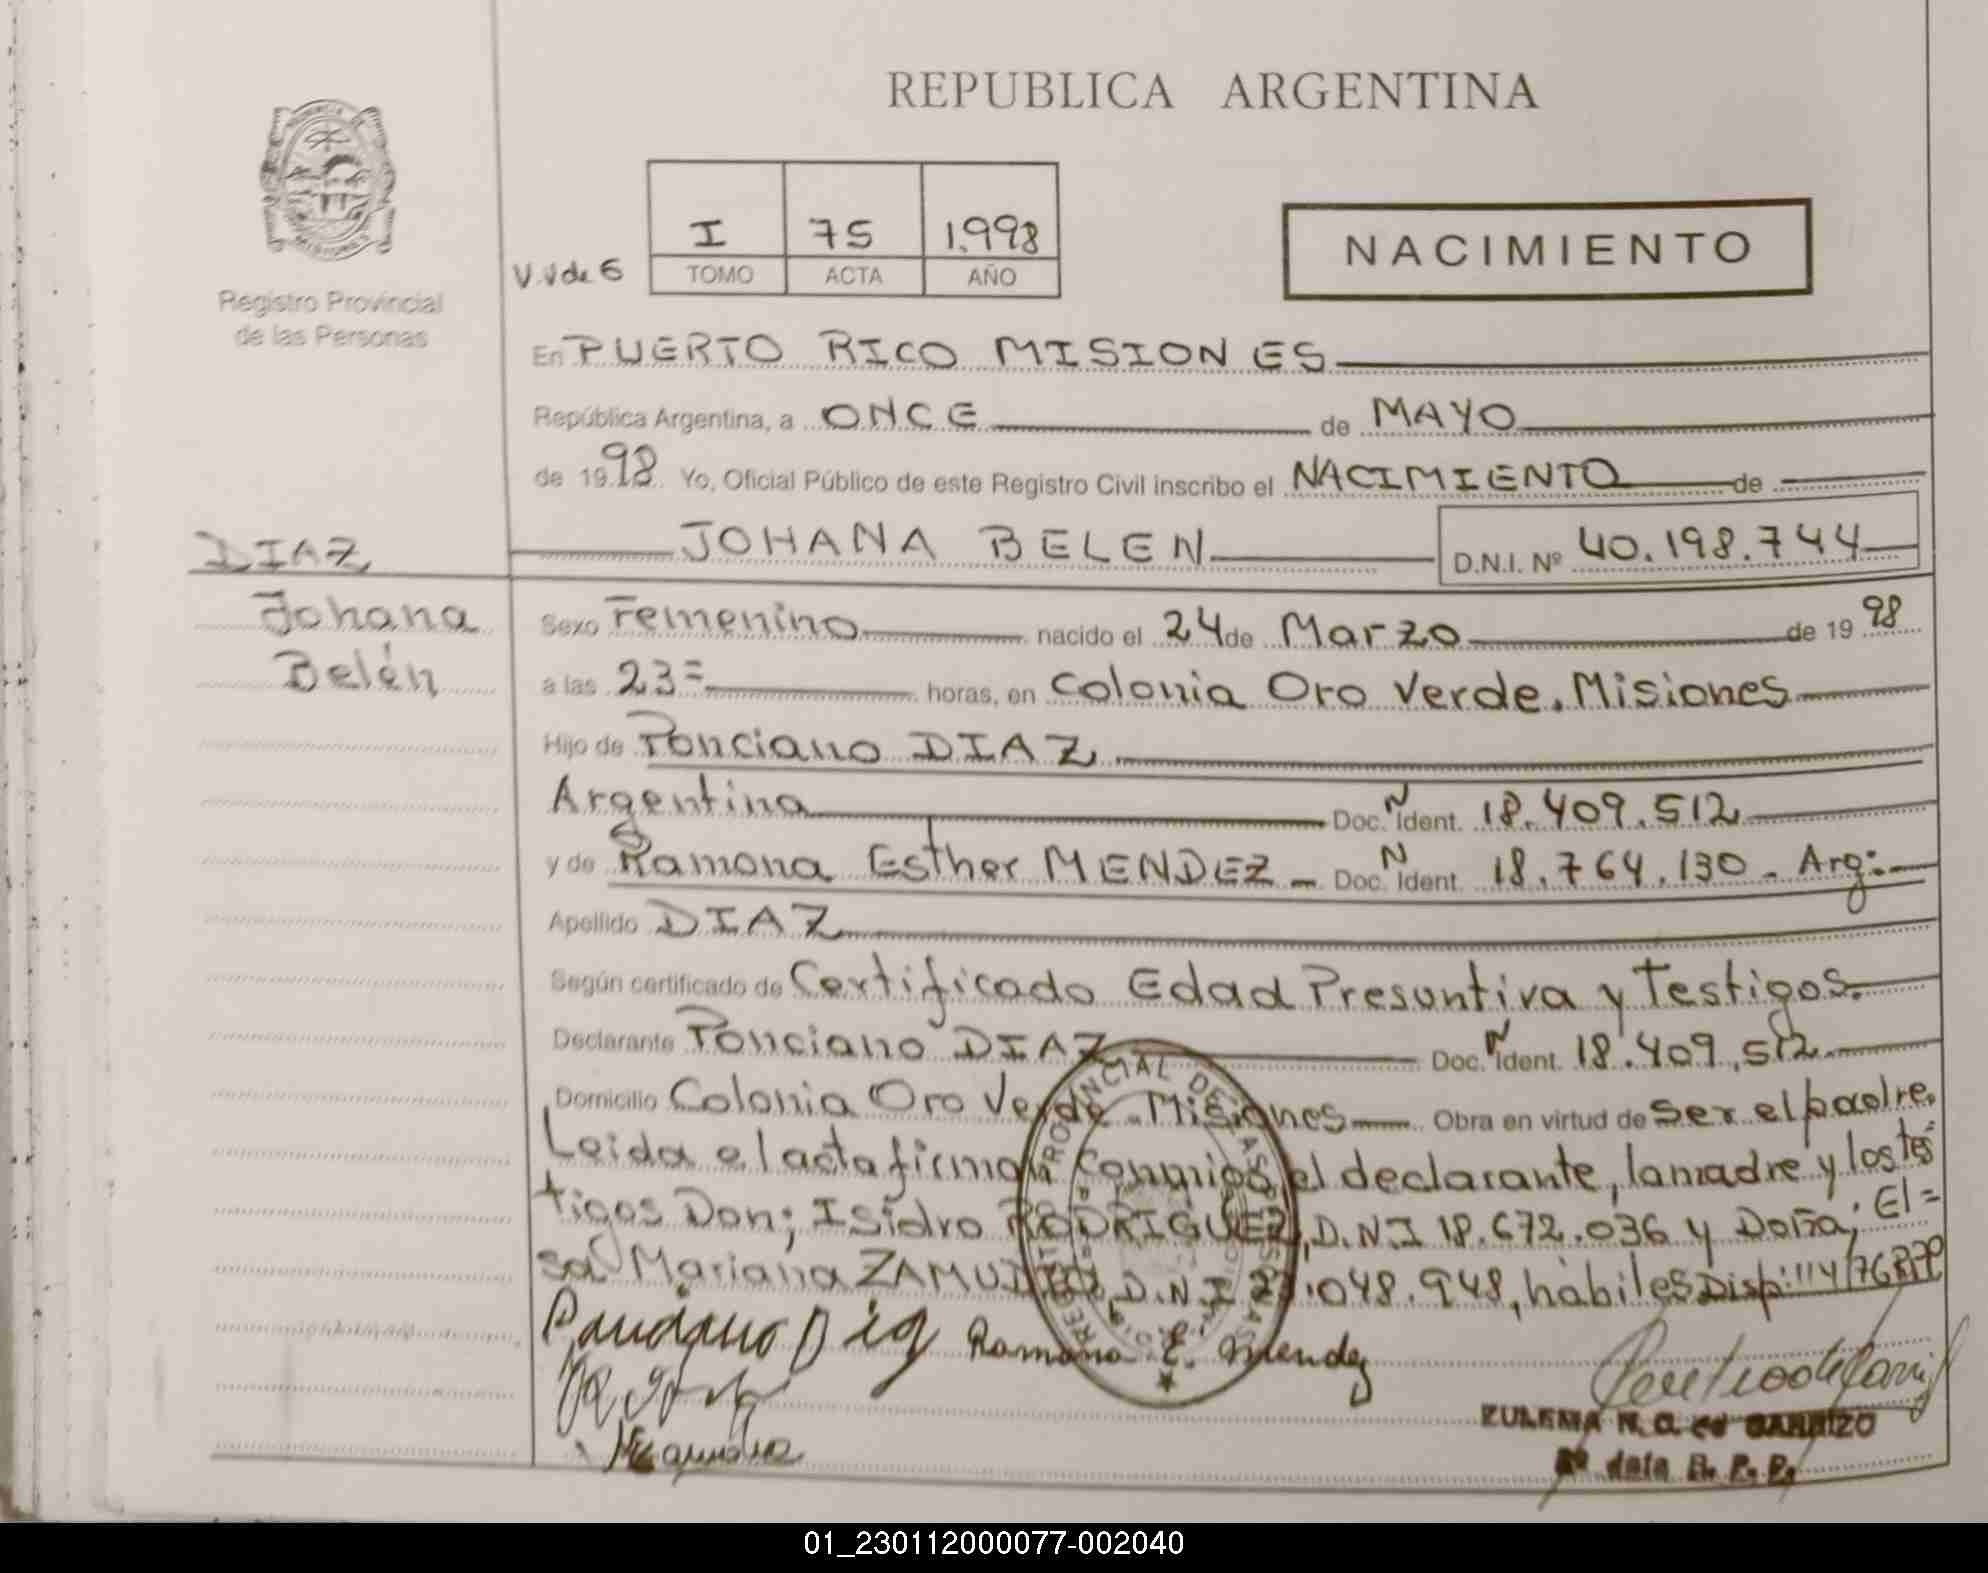 REPUBLICA ARGENTINA
I 75 1.998
V.V de 6 TOMO ACTA AÑO
NACIMIENTO
Registro Provincial
de las Personas
En PUERTO RICO MISIONES
República Argentina, a ONCE de MAYO
de 1998 Yo, Oficial Público de este Registro Civil inscribo el NACIMIENTO de
DIAZ JOHANA BELEN D.N.I. Nº 40.198.744
Johana Sexo Femenino nacido el 24 de Marzo de 1998
Belén a las 23= horas, en Colonia Oro Verde. Misiones
Hijo de Ponciano DIAZ
Argentina Doc. N Ident. 18.409.512
y de Ramona Esther MENDEZ - Doc. N Ident. 18.764.130 - Arg:
Apellido DIAZ
Según certificado de Certificado Edad Presuntiva y Testigos.
Declarante Ponciano DIAZ Doc. N Ident. 18.409.512
Domicilio Colonia Oro Verde - Misiones Obra en virtud de ser el padre.
Leida el acta firman conmigo, el declarante, la madre y los tes
tigos Don; Isidro RODRIGUEZ, D.N.I 18.672.036 y Doña; El=
sa Mariana D.N.I .048.948, habiles Disp: 114/76
REGISTRO PROVINCIAL DE LAS PERSONAS
Ramona E. Mendez
ZULEMA N. G. de
R. P. P.
01_230112000077-002040